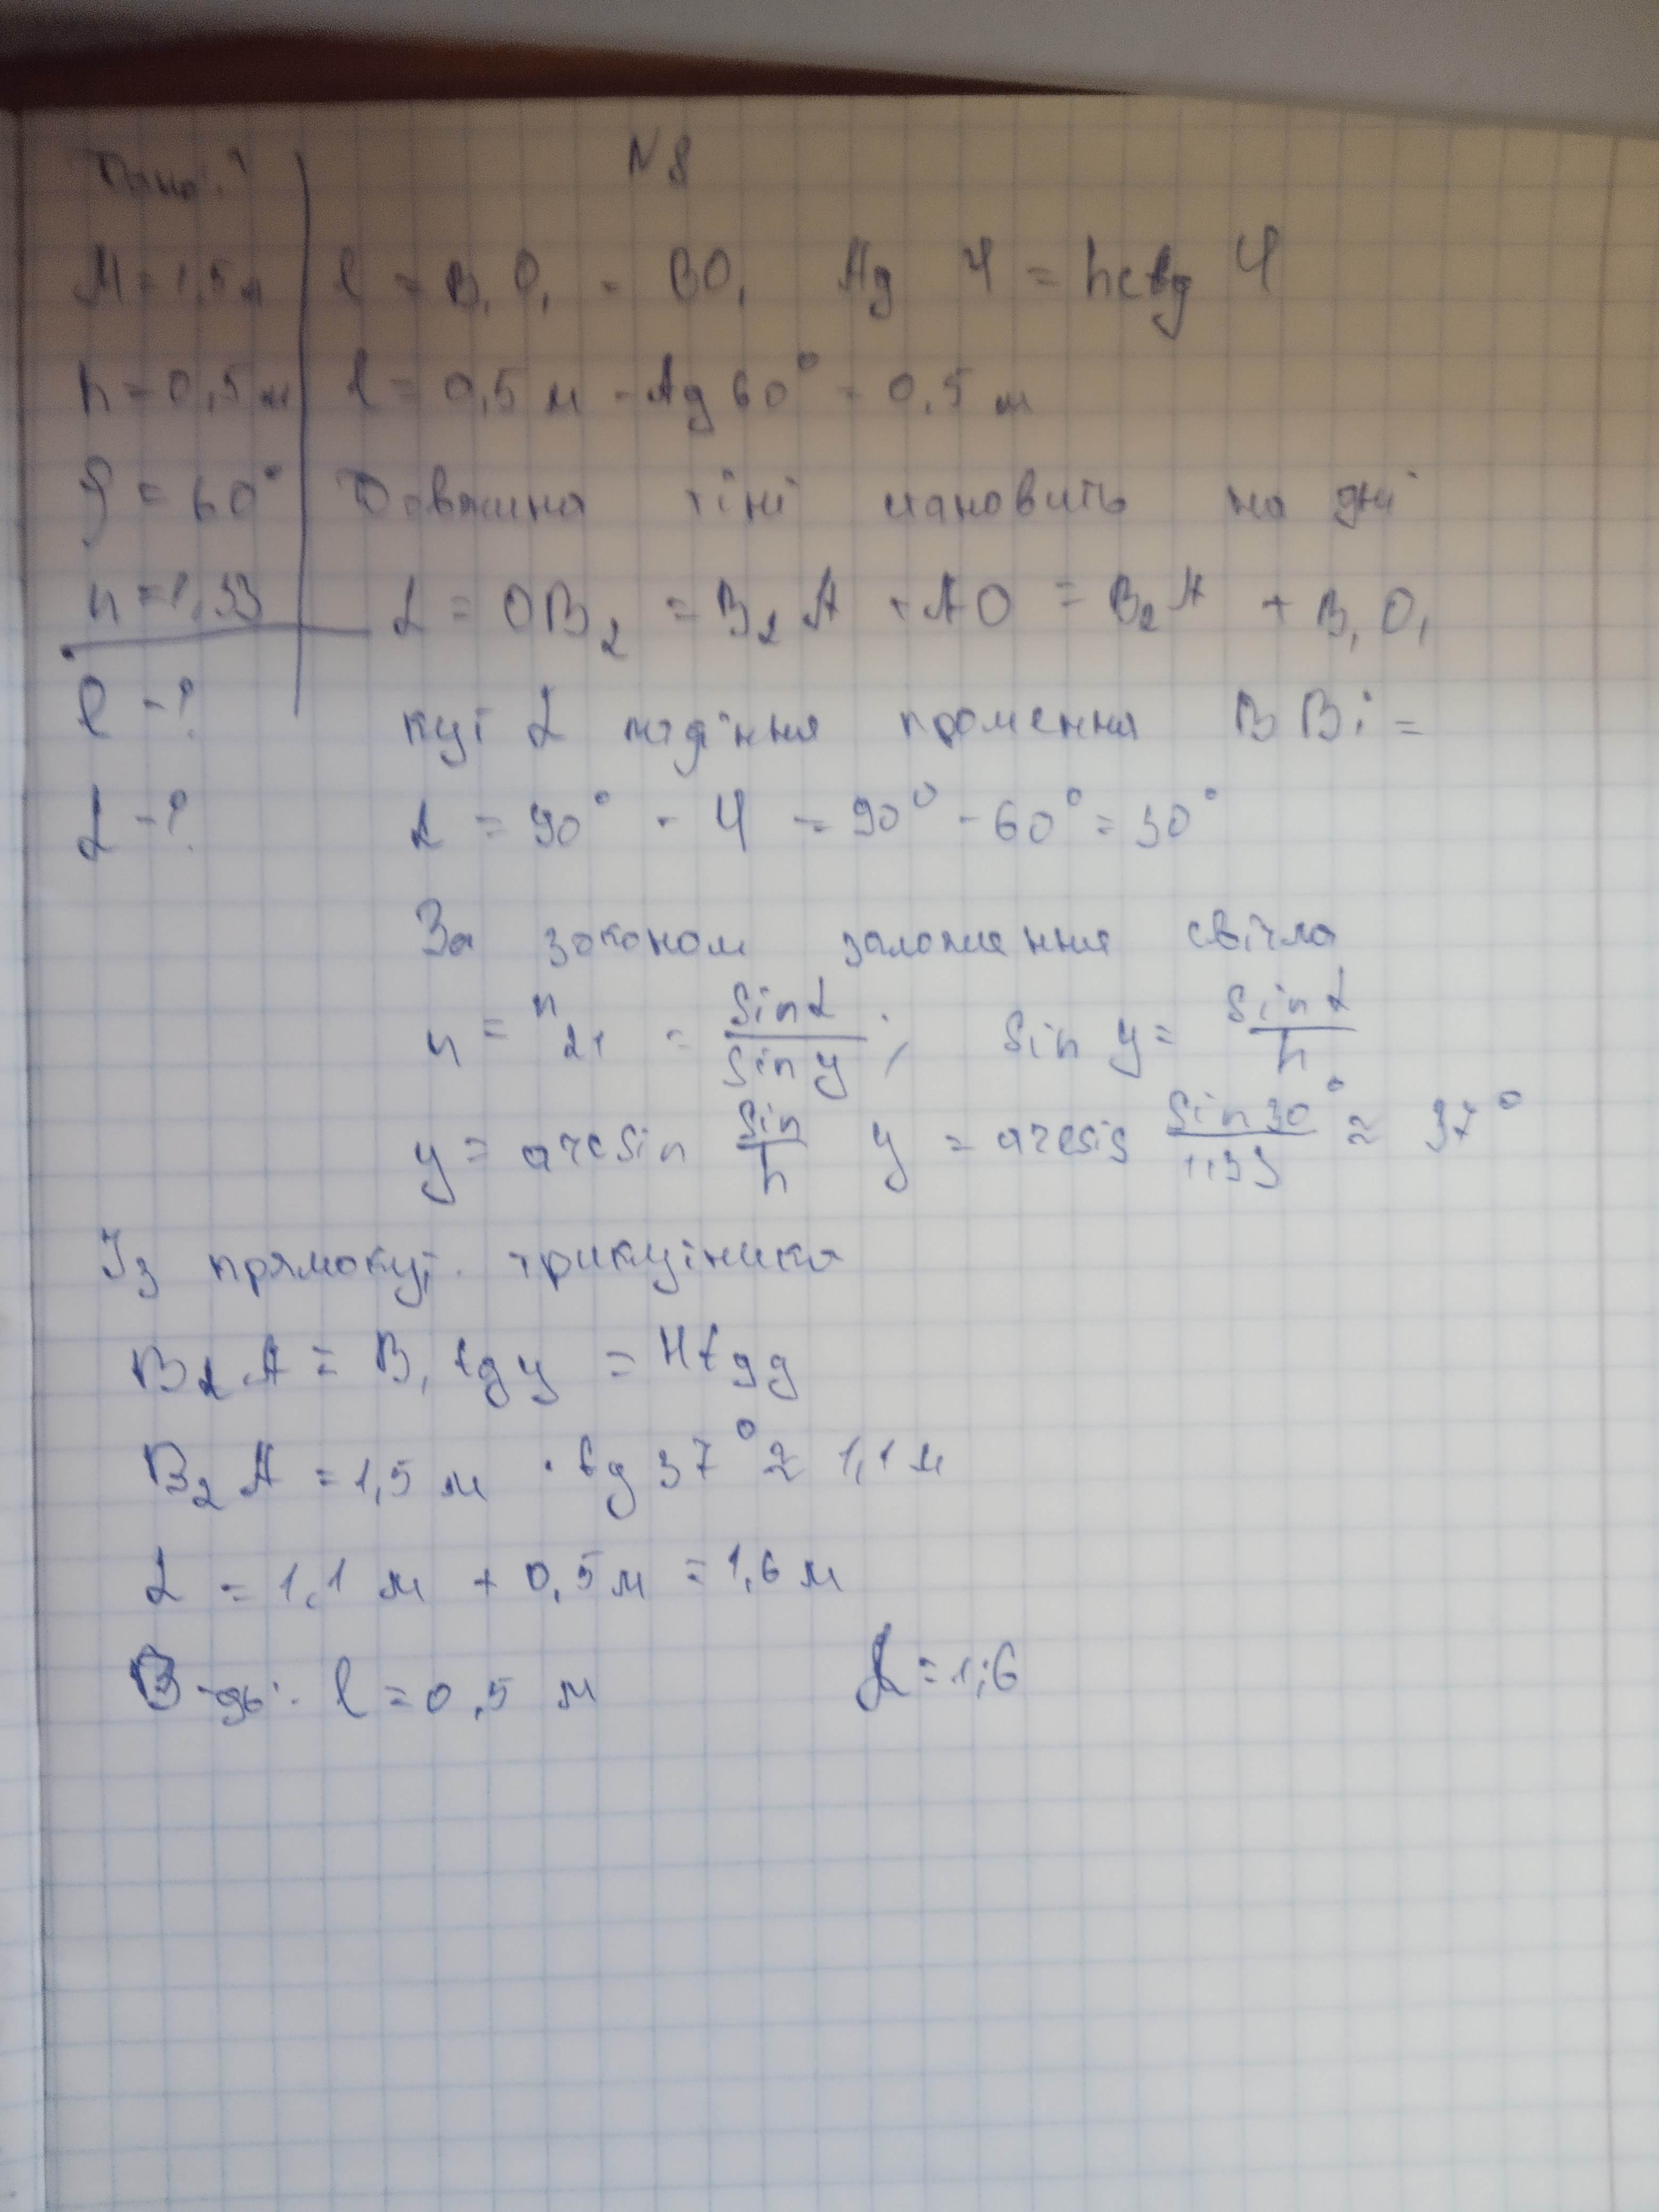 N 8
Дано:
H = 1,5 м l = B₁O₁ = BO₁ Ag φ = hctg φ
h = 0,5 м l = 0,5 м · Ag 60° = 0,5 м
φ = 60° Довжина тіні становить на дні
n = 1,33 L = OB₂ = B₂A + AO = B₂A + B₁O₁
l - ? кут L падіння променя BBi =
L - ? L = 90° - φ = 90° - 60° = 30°
За законом заломлення світла
n = n₂₁ = sin L / sin y ; sin y = sin L / n
y = arcsin sin / n y = arcsis sin 30° / 1,33 ≈ 37°
Із прямокут. трикутника
B₂A = B₁ tg y = H tg y
B₂A = 1,5 м · tg 37° ≈ 1,1 м
L = 1,1 м + 0,5 м = 1,6 м
В-дь: l = 0,5 м L = 1,6